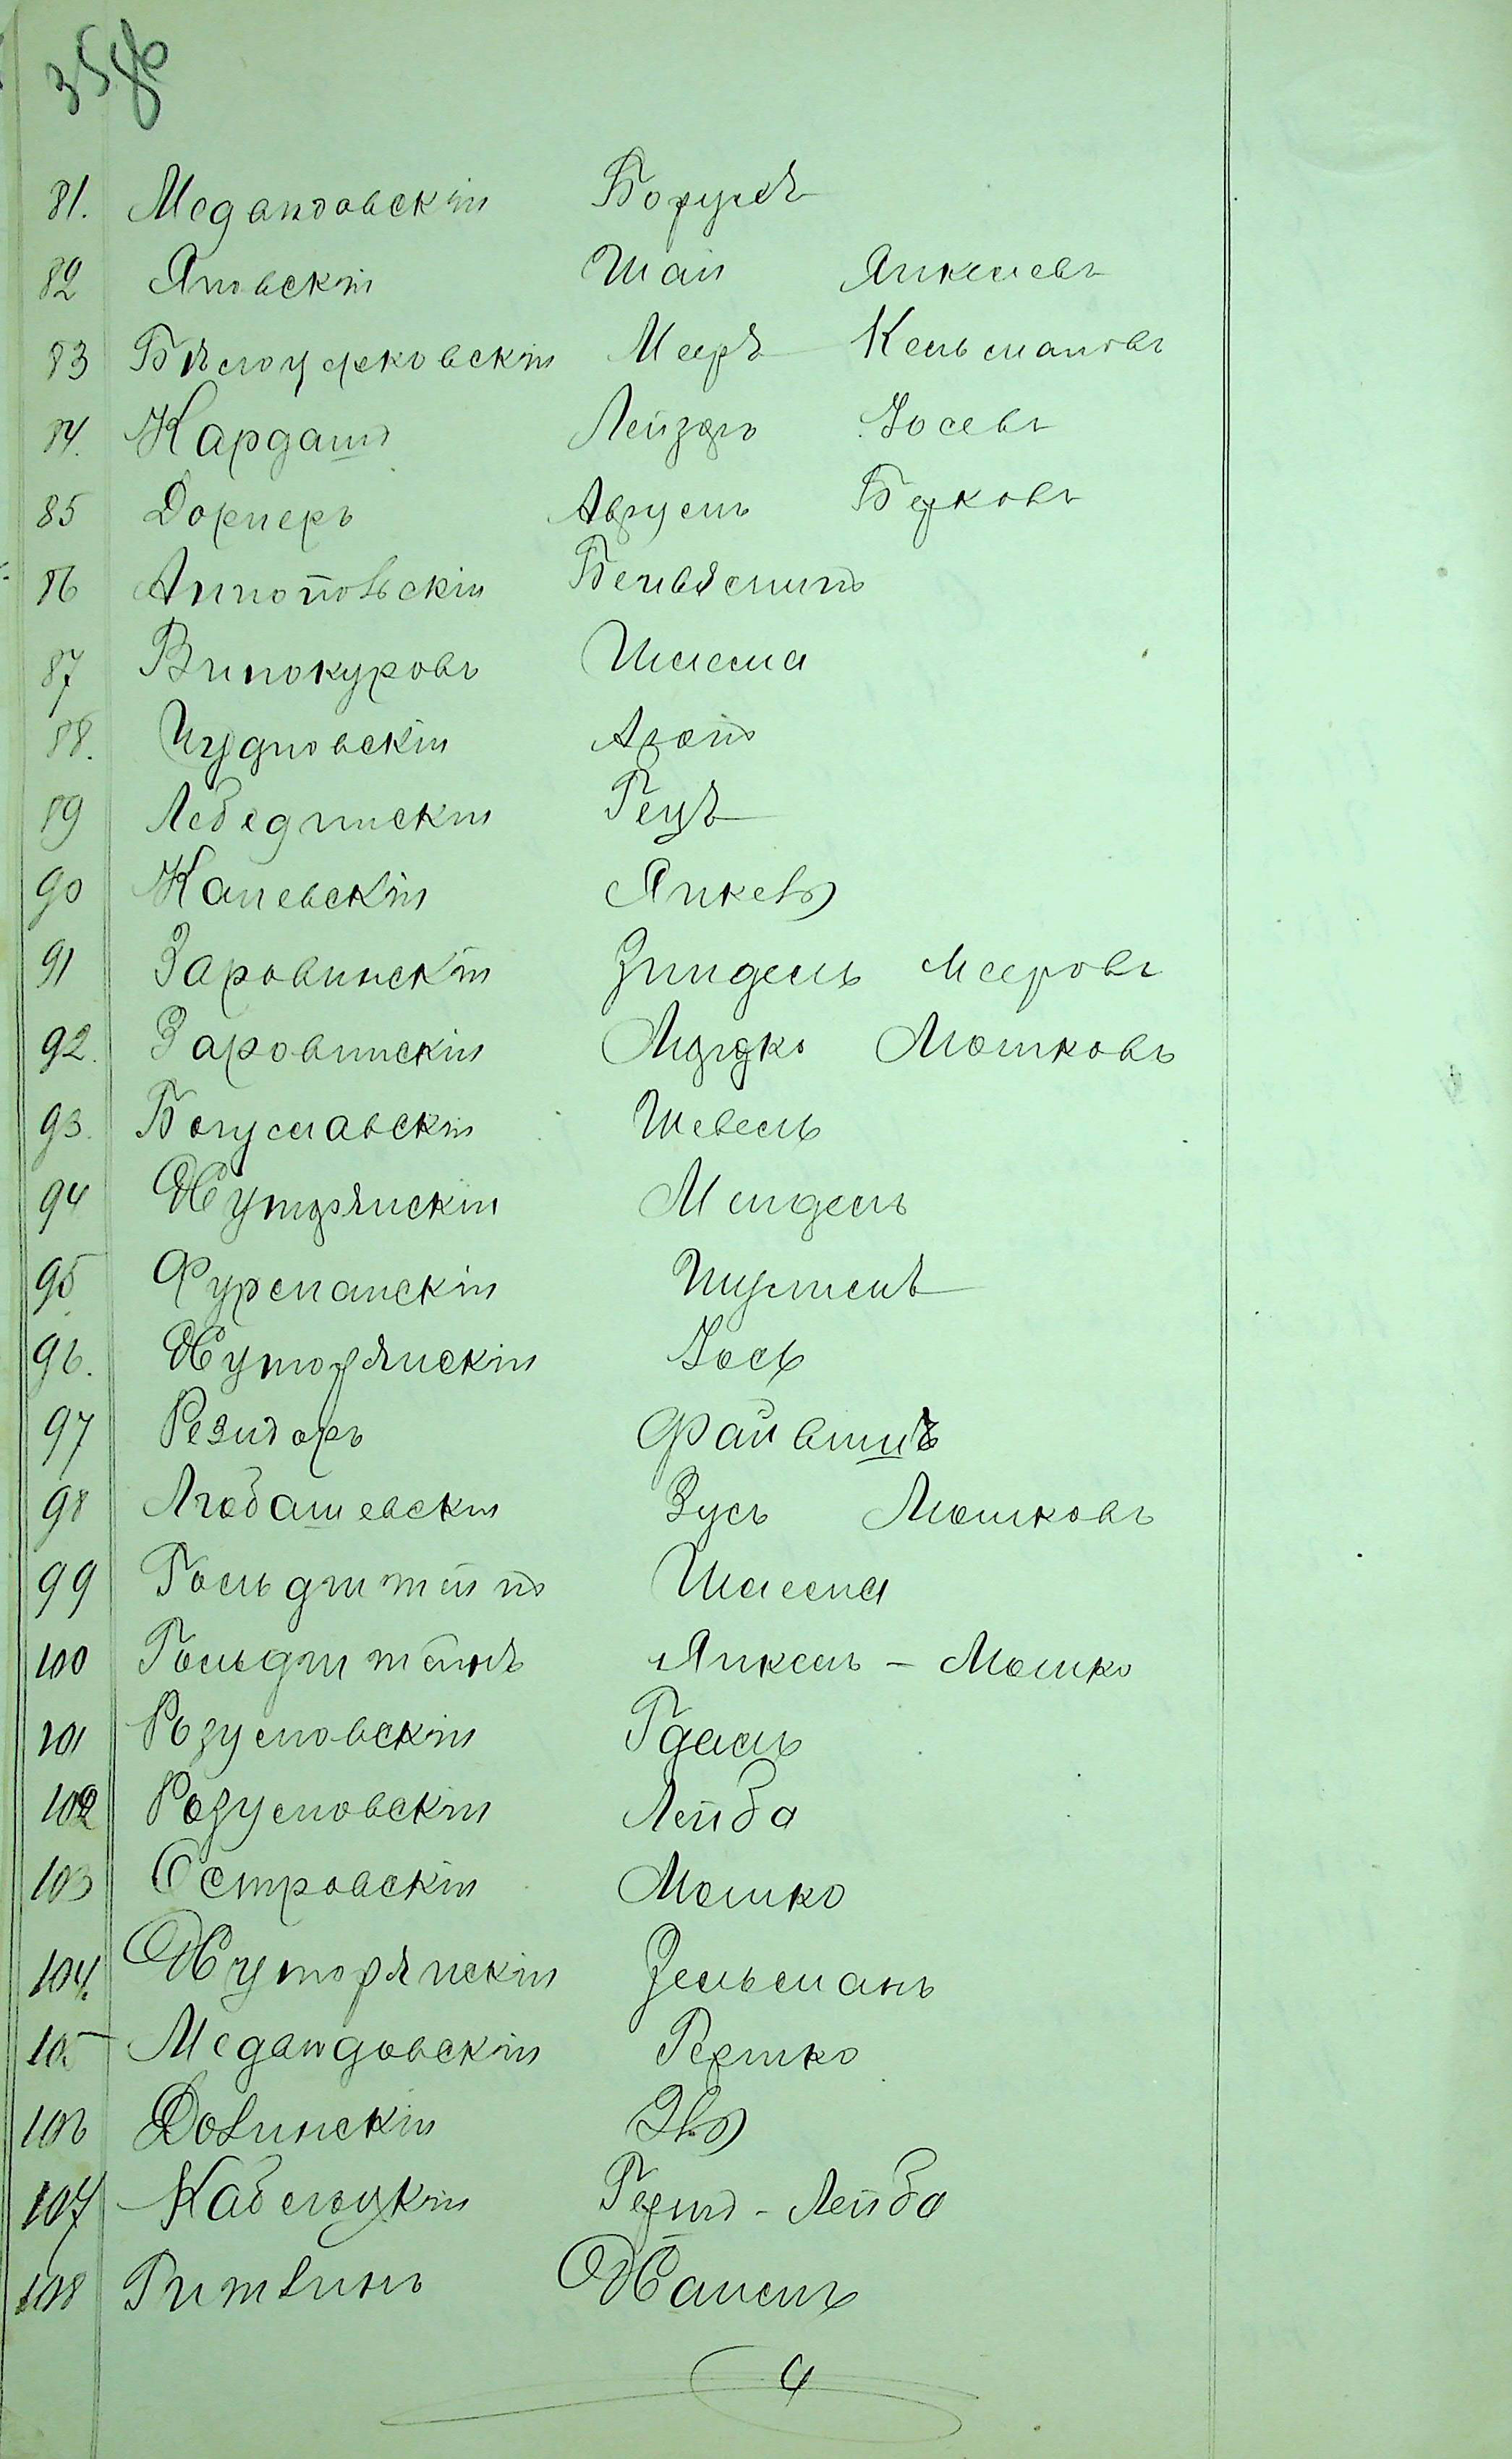 35 об
81. Медвидовскій Борухъ
82 Яновскій Шая Янкелевъ
83 Бѣлоцерковскій Мееръ Кельмановъ
84. Кардашъ Лейзеръ Іосевъ
85 Дорперъ Аврумъ Берковъ
86 Аннопольскій Беньяминъ
87 Винокуровъ Шлема
88. Чудновскій Аронъ
89 Лебединскій Гецъ
90 Каневскій Янкевъ
91 Заровинскій Зиндель Мееровъ
92. Заровинскій Лидко Мошковъ
93. Богуславскій Шевель
94 Хуторянскій Мендель
95 Фурманскій
96. Хуторянскій Іось
97 Резидоръ Файвишъ
98 Любашевскій Зусь Мошковъ
99 Гольдштейнъ Шлема
100 Гольдштейнъ Янкель - Мошко
101 Розумовскій Гдаль
102 Розумовскій Лейба
103 Островскій Мошко
104. Хуторянскій Зельманъ
105 Медвидовскій Гершко
106 Довинскій
107 Каблоцкій Герш - Лейба
108 Гитвинъ Ханель